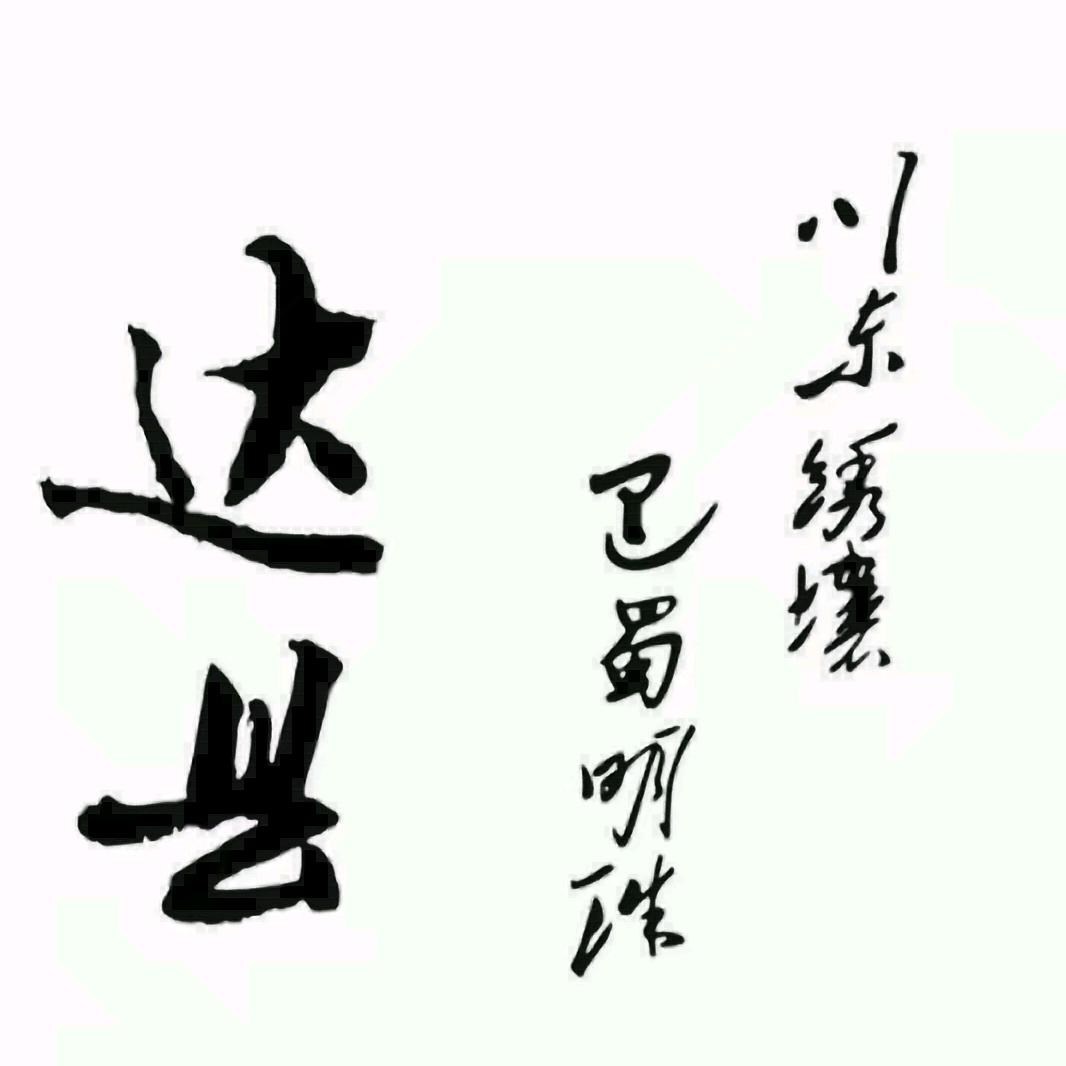 川东绣壤
巴蜀明珠
达县